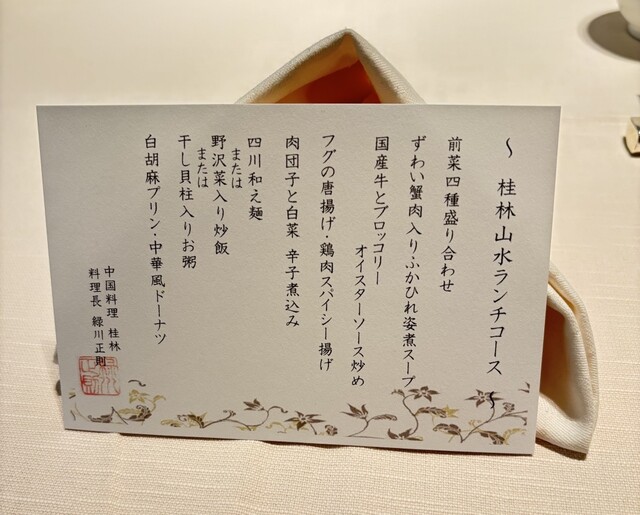 ～ 桂林山水ランチコース ～
前菜四種盛り合わせ
ずわい蟹肉入りふかひれ姿煮スープ
国産牛とブロッコリー
オイスターソース炒め
フグの唐揚げ・鶏肉スパイシー揚げ
肉団子と白菜 辛子煮込み
四川和え麺
または
野沢菜入り炒飯
または
干し貝柱入りお粥
白胡麻プリン・中華風ドーナツ
中国料理 桂林
料理長 緑川正則